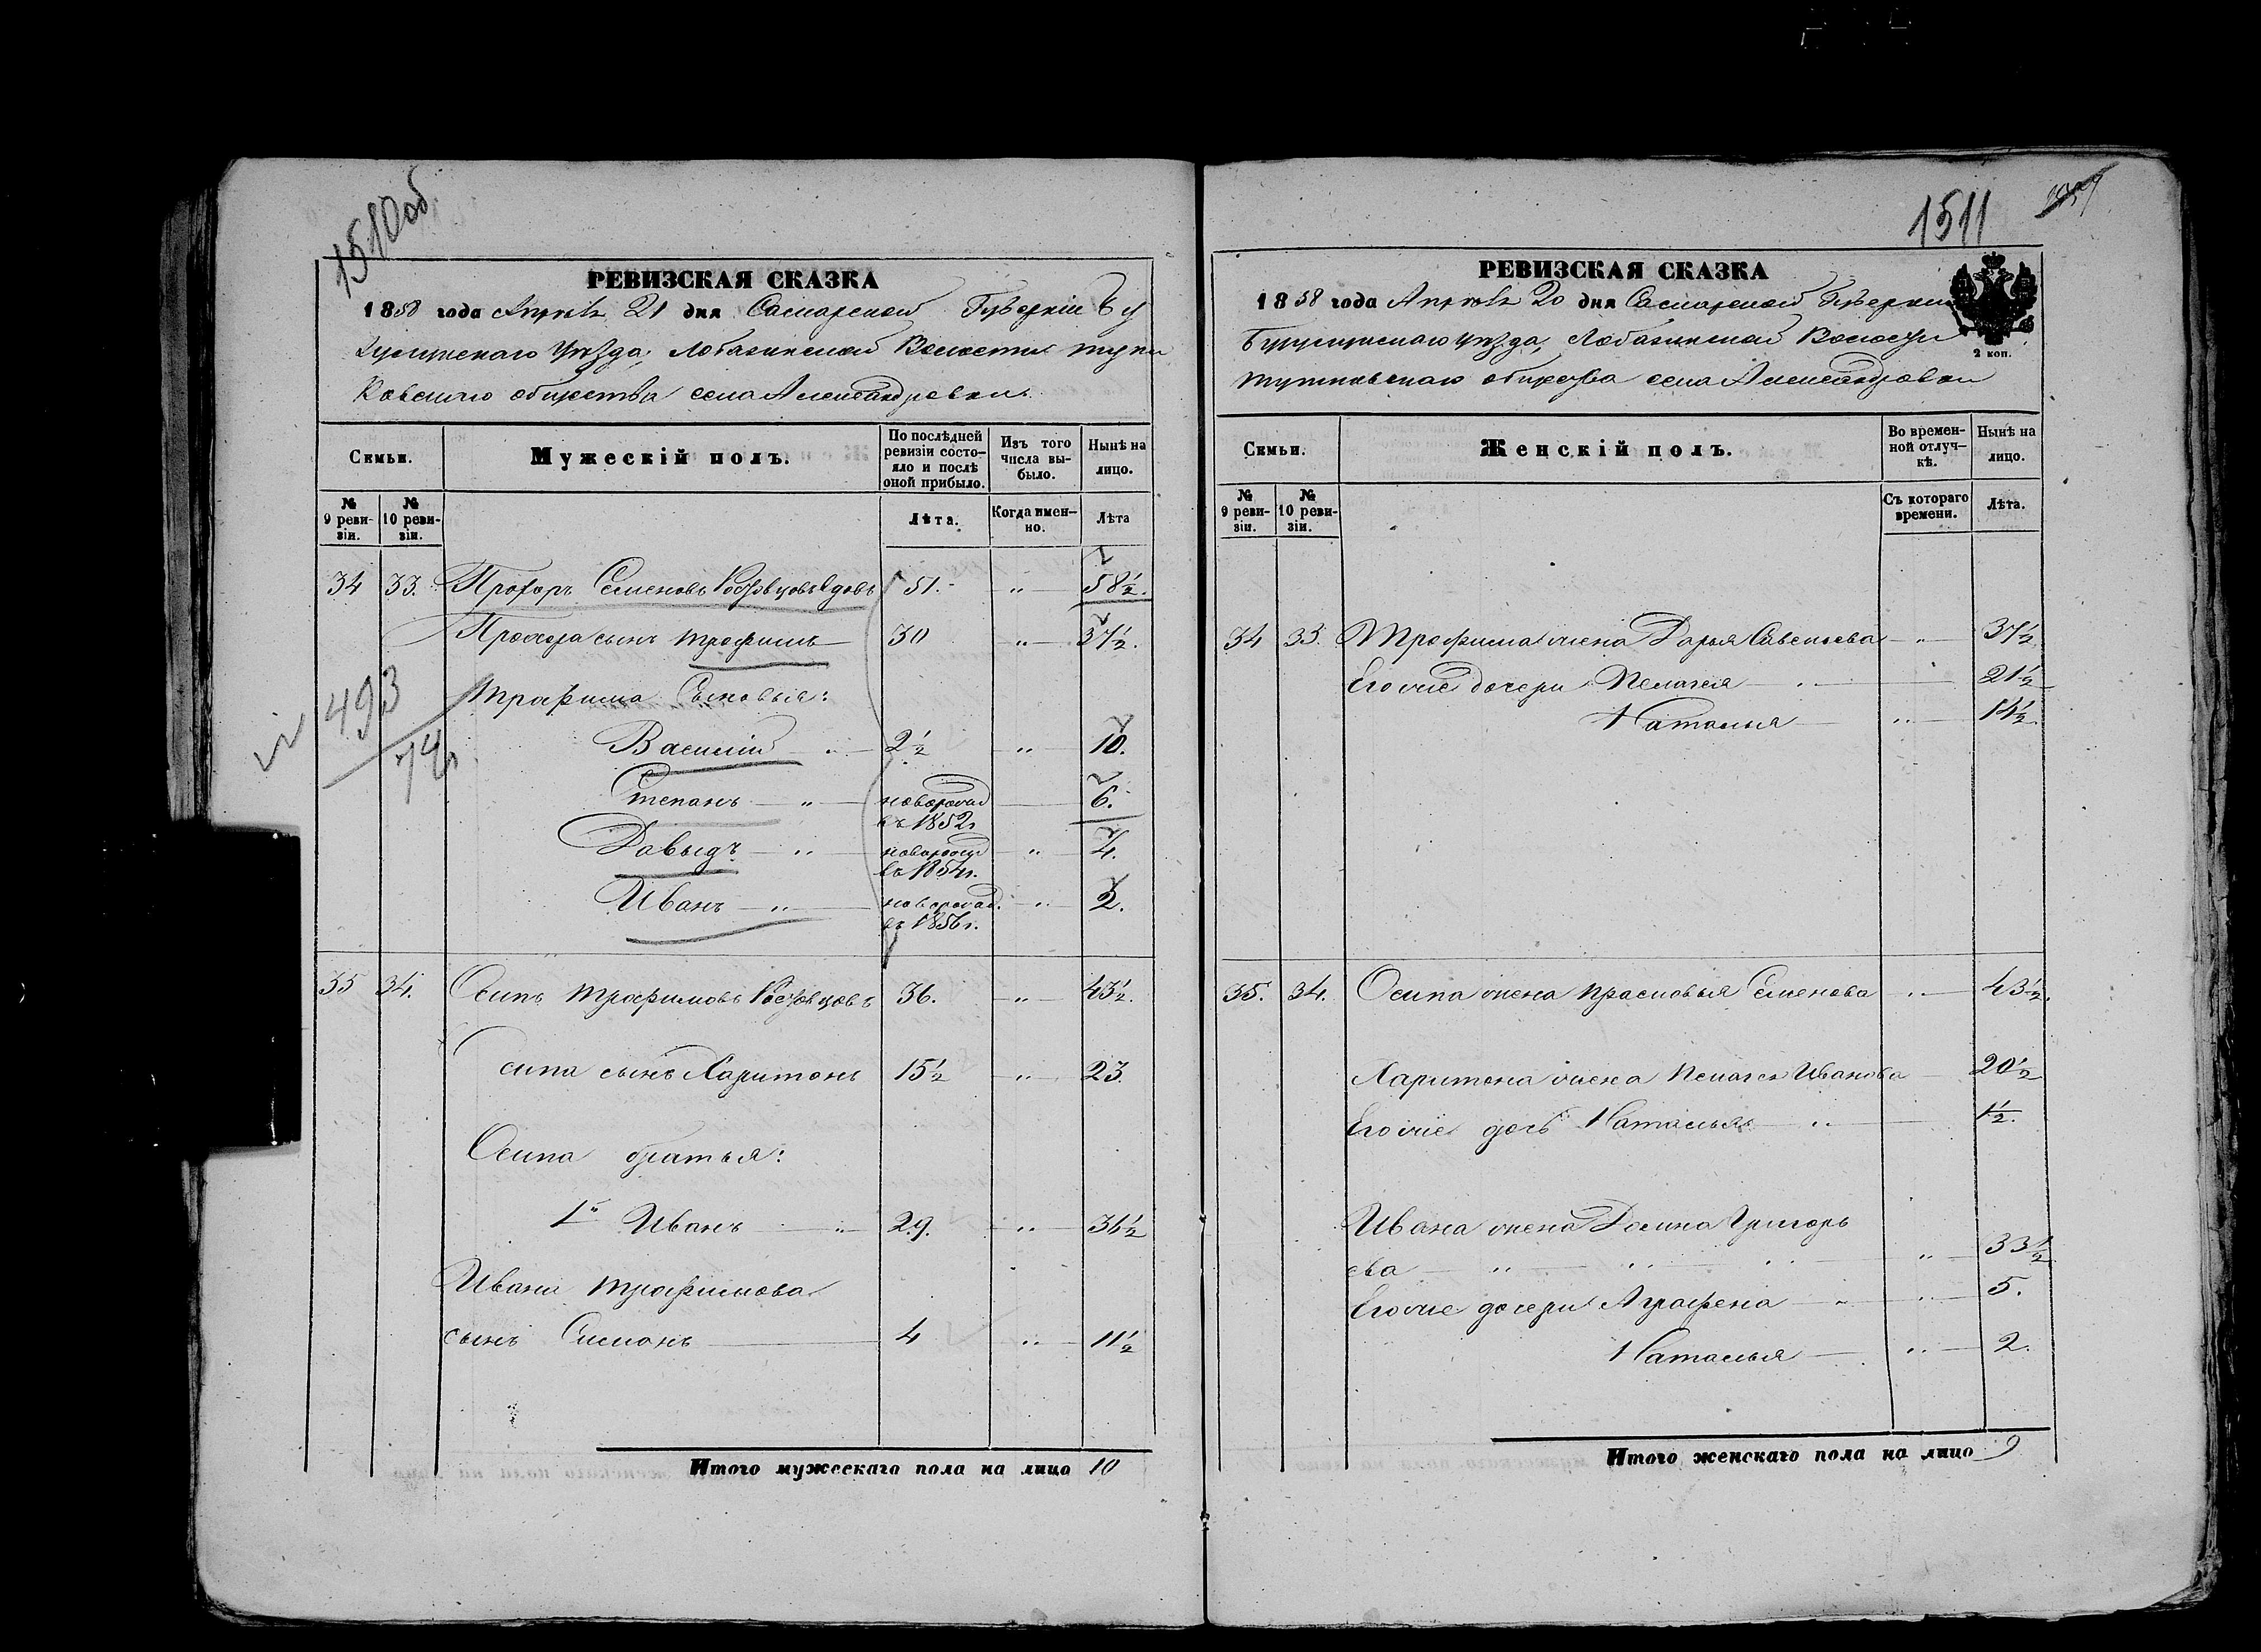 1510 об
РЕВИЗСКАЯ СКАЗКА
1858 года Апрѣля 21 дня Самарской Губерніи Бу
гурусланского Уѣзда, Лобазинской Волости
ковскаго общества села Александровки
Семьи.
Мужескій полъ.
По послѣдней ревизіи состояло и послѣ оной прибыло.
Изъ того числа выбыло.
Нынѣ на лицо.
№ 9 ревизіи.
№ 10 ревизіи.
Лѣта.
Когда именно.
Лѣта
34 33. Прохоръ Семеновъ вдовъ 51. „ 58½.
Прохора сынъ Трофимъ 30 „ 37½.
Трофима Сыновья:
493
Василій „ 2½ „ 10.
Степанъ „ новорожд 6.
въ 1852г
Давыдъ „ новорожд „ 4.
въ 1854г.
Иванъ „ новорожд. „ 2.
въ 1856г.
35 34. Осипъ Трофимовъ 36. „ 43½.
сипа сынъ Харитонъ 15½ „ 23.
Осипа братья:
1й Иванъ „ 29. „ 36½
Ивана Трофимова
сынъ Симонъ 4 „ 11½
Итого мужескаго пола на лицо 10
1511
РЕВИЗСКАЯ СКАЗКА
1858 года Апрѣля 20 дня Самарской Губерніи
Бугурусланского уѣзда, Лобазинской Волости
общества села Александровки
2 коп.
Семьи.
Женскій полъ.
Во временной отлучкѣ.
Нынѣ на лицо.
№ 9 ревизіи.
№ 10 ревизіи.
Съ котораго времени.
Лѣта.
34 33. Трофима жена Дарья Савельева „ 37½
Его же дочери Пелагея „ 21½
Наталья „ 14½.
35. 34. Осипа жена Прасковья Семенова „ 43½.
Харитона жена Пелагея Иванова 20½
Его же дочь Наталья „ 1½.
Ивана жена Домна Григорь
ева „ „ „ „ 33½
Его же дочери Аграфена „ „ 5.
Наталья „ 2.
Итого женскаго пола на лицо 9